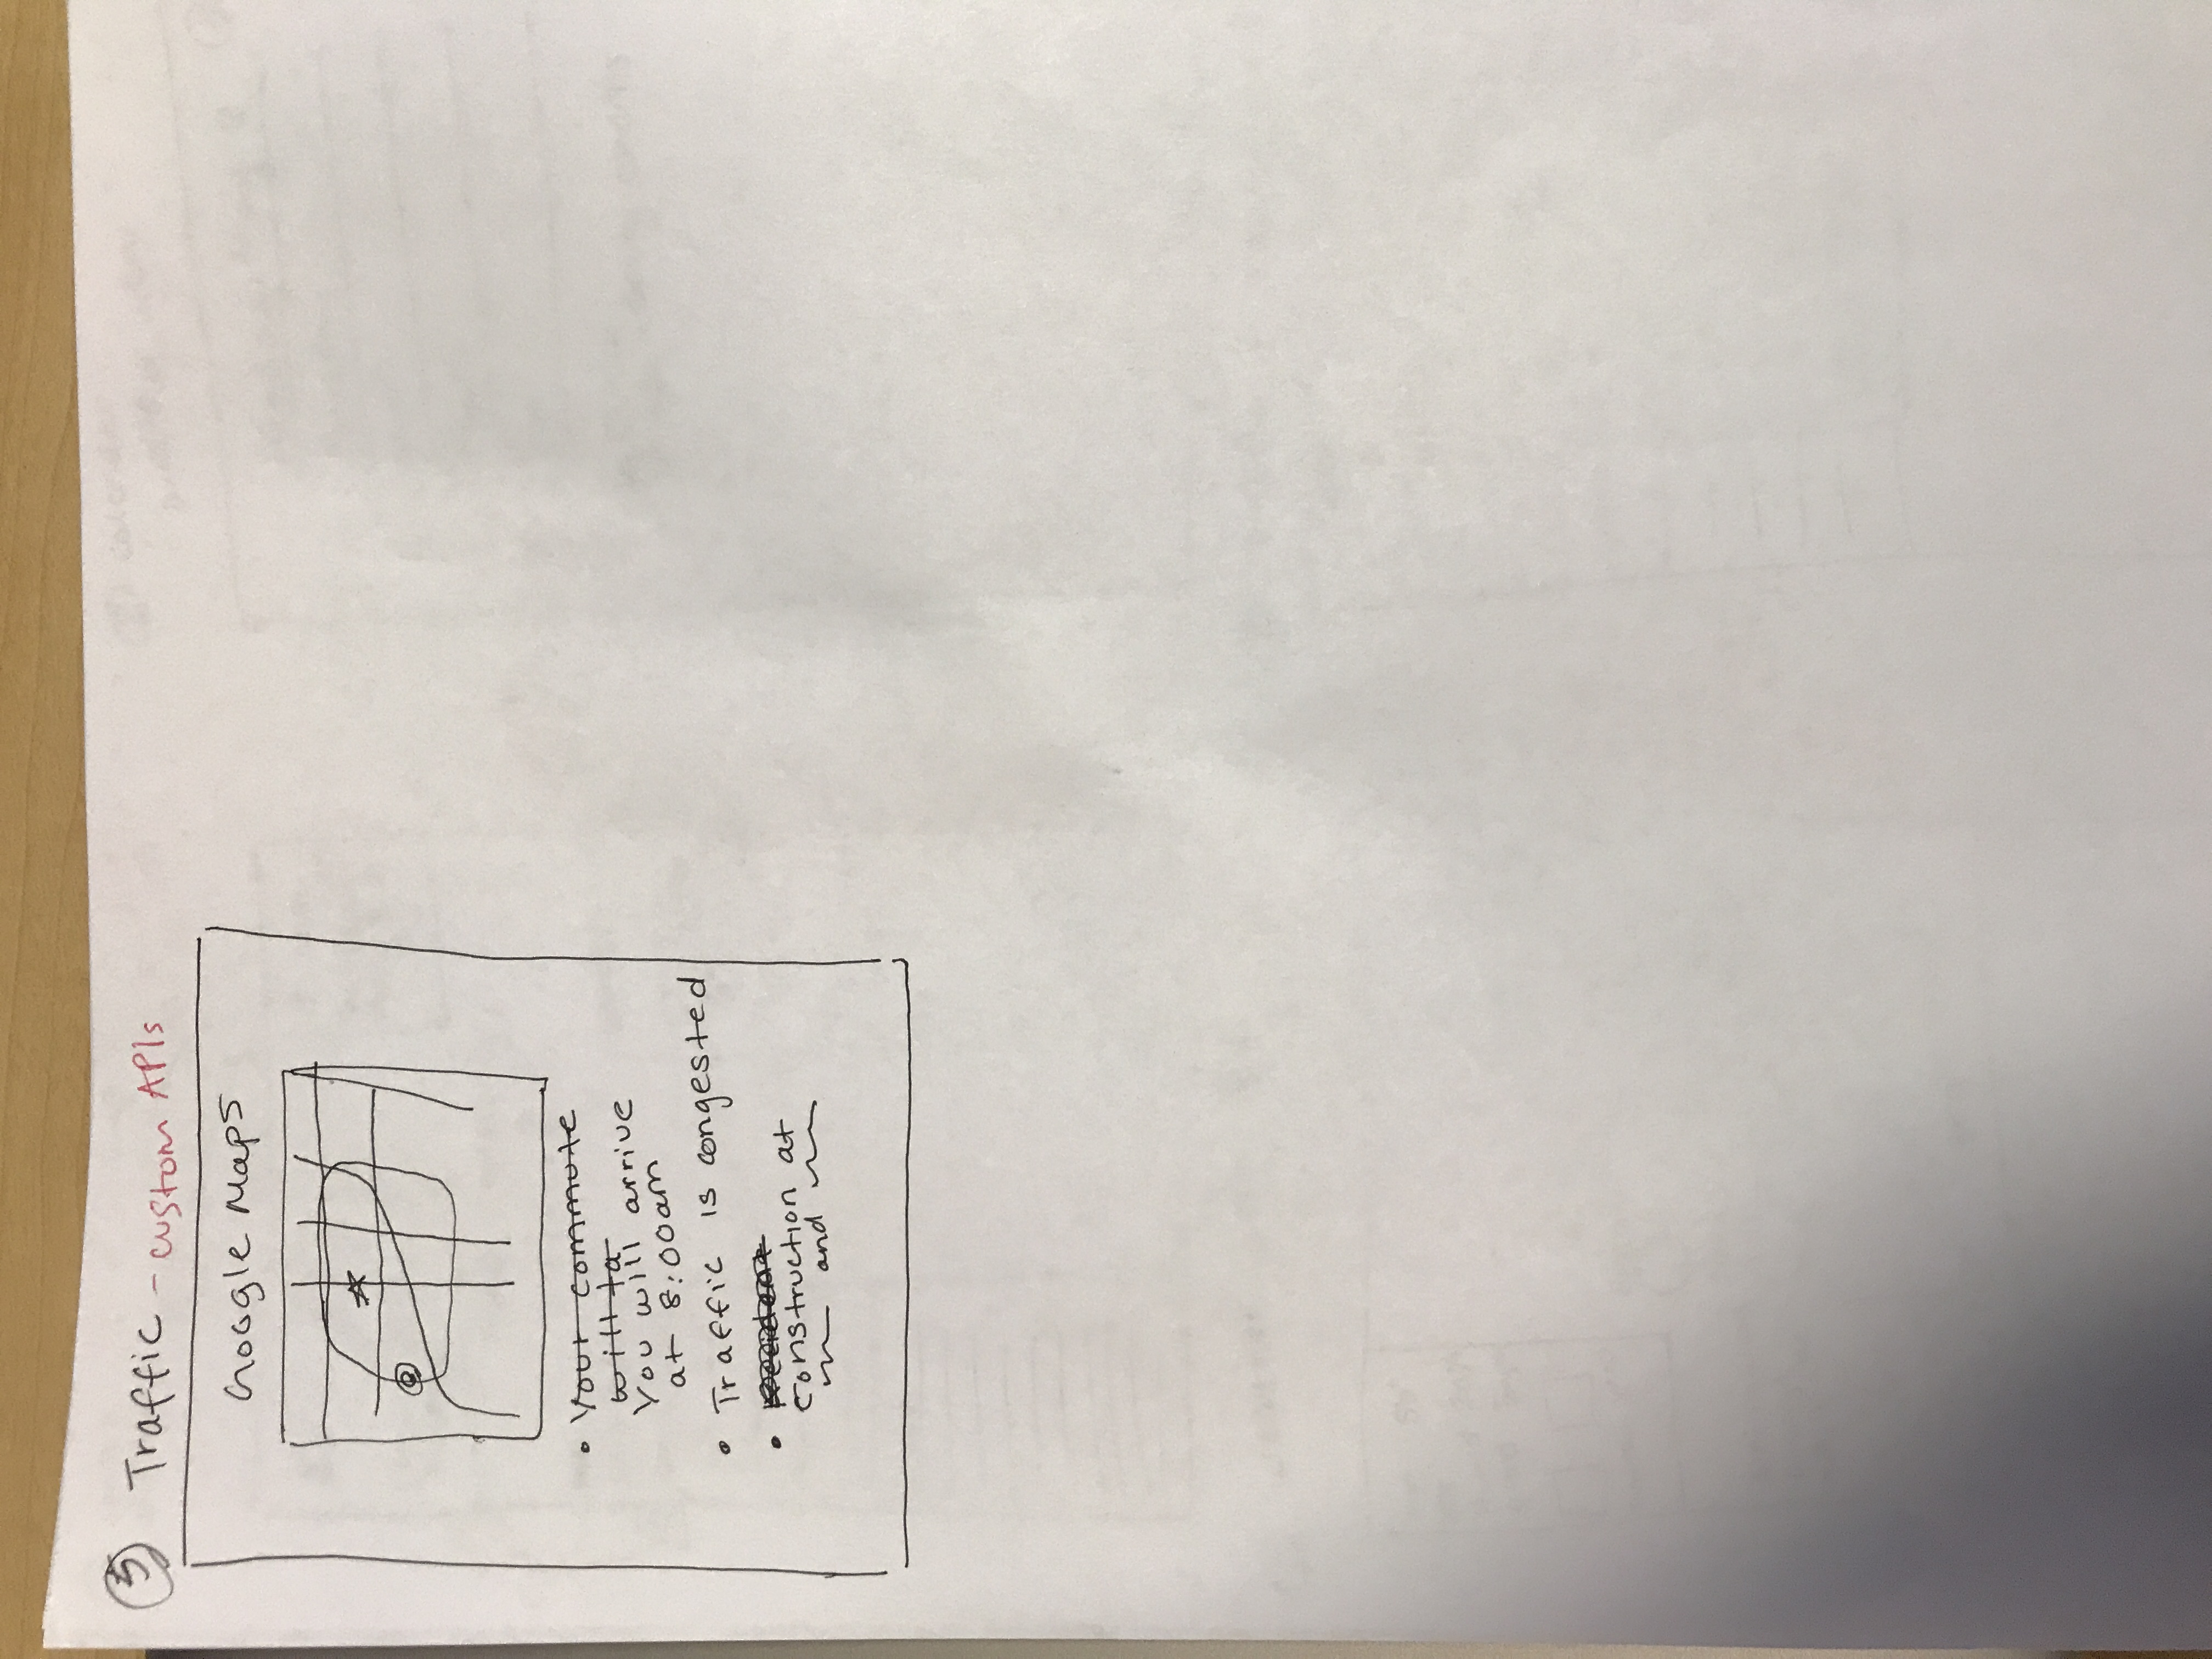 5 Traffic - custom APIs
Google Maps
• Your commute
will ta
You will arrive
at 8:00am
• Traffic is congested
• Accident
construction at
and